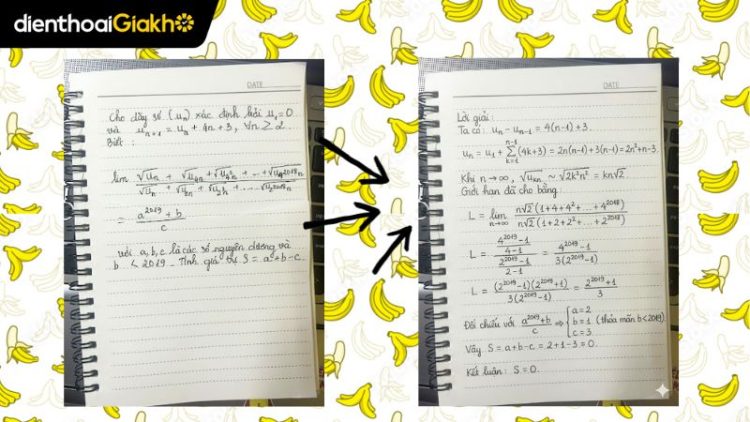 dienthoaiGiakho
DATE
Cho dãy số (uₙ) xác định bởi u₁ = 0
và uₙ₊₁ = uₙ + 4n + 3, ∀n ≥ 2.
Biết :
lim (√uₙ + √u₄ₙ + √u₄²ₙ + ... + √u₄²⁰¹⁸ₙ) / (√uₙ + √u₂ₙ + √u₂²ₙ + ... + √u₂²⁰¹⁸ₙ)
= (a²⁰¹⁹ + b) / c
với a, b, c là các số nguyên dương và
b < 2019. Tính giá trị S = a + b - c.
DATE
Lời giải :
Ta có: uₙ - uₙ₋₁ = 4(n-1)+3.
uₙ = u₁ + ∑ₖ₌₁ⁿ⁻¹ (4k+3) = 2n(n-1)+3(n-1) = 2n²+n-3.
Khi n→∞, √uₖₙ ~ √2k²n² = kn√2.
Giới hạn đã cho bằng:
L = lim n→∞ n√2(1+4+4²+...+4²⁰¹⁸) / n√2(1+2+2²+...+2²⁰¹⁸)
L = ((4²⁰¹⁹-1)/(4-1)) / ((2²⁰¹⁹-1)/(2-1)) = (4²⁰¹⁹-1) / 3(2²⁰¹⁹-1)
L = (2²⁰¹⁹-1)(2²⁰¹⁹+1) / 3(2²⁰¹⁹-1) = (2²⁰¹⁹+1) / 3
Đối chiếu với (a²⁰¹⁹+b) / c ⇒ { a=2 b=1 c=3 (thỏa mãn b<2019)
Vậy S = a+b-c = 2+1-3 = 0.
Kết luận: S=0.